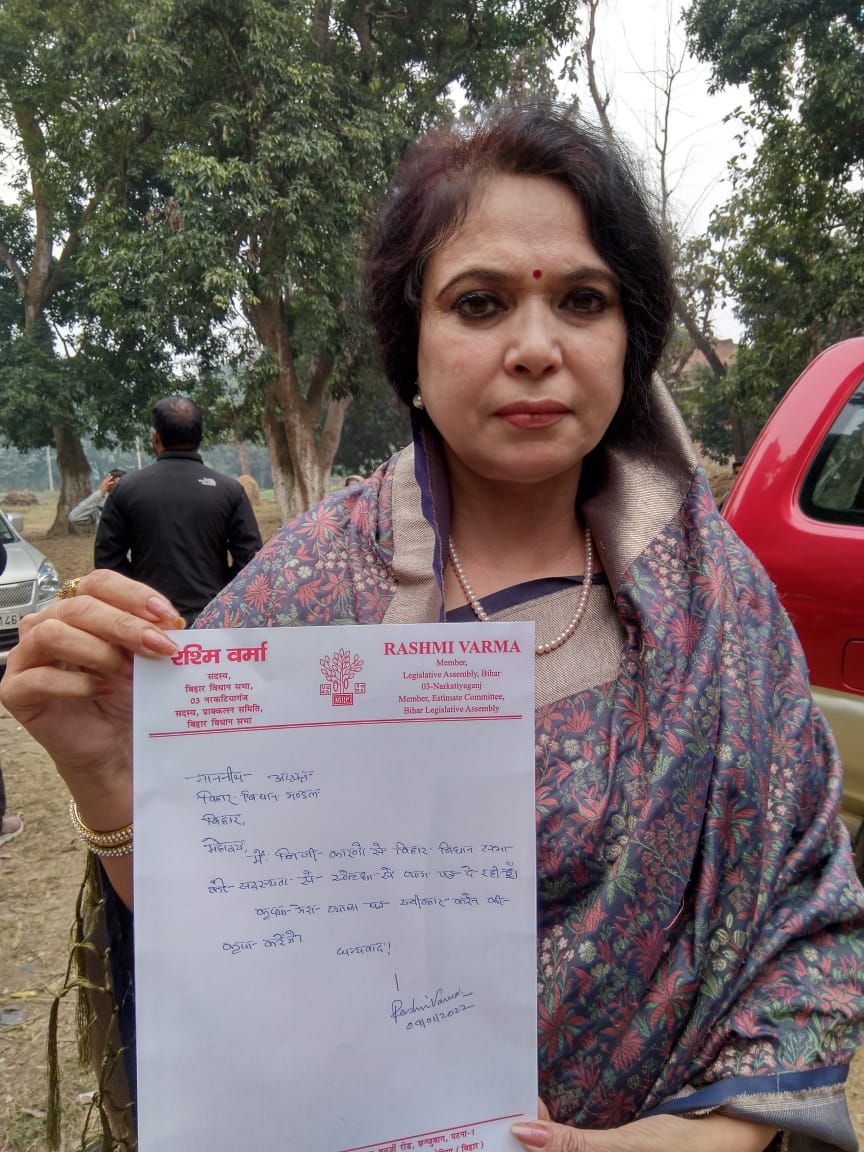 रश्मि वर्मा
सदस्य,
बिहार विधान सभा,
03 नरकटियागंज
सदस्य, प्राक्कलन समिति,
बिहार विधान सभा
RASHMI VARMA
Member,
Legislative Assembly, Bihar
03-Narkatiyaganj
Member, Estimate Committee,
Bihar Legislative Assembly
माननीय अध्यक्ष
बिहार विधान मण्डल
बिहार,
महोदय
मैं निजी कारणों से बिहार विधान सभा
की सदस्यता से स्वेच्छा से त्याग पत्र दे रही हूँ।
कृपया मेरा त्याग पत्र स्वीकार करने की
कृपा करेंगे।
धन्यवाद!
Rashmi Varma
09/01/2022
रोड, छज्जुबाग, पटना-1
(बिहार)